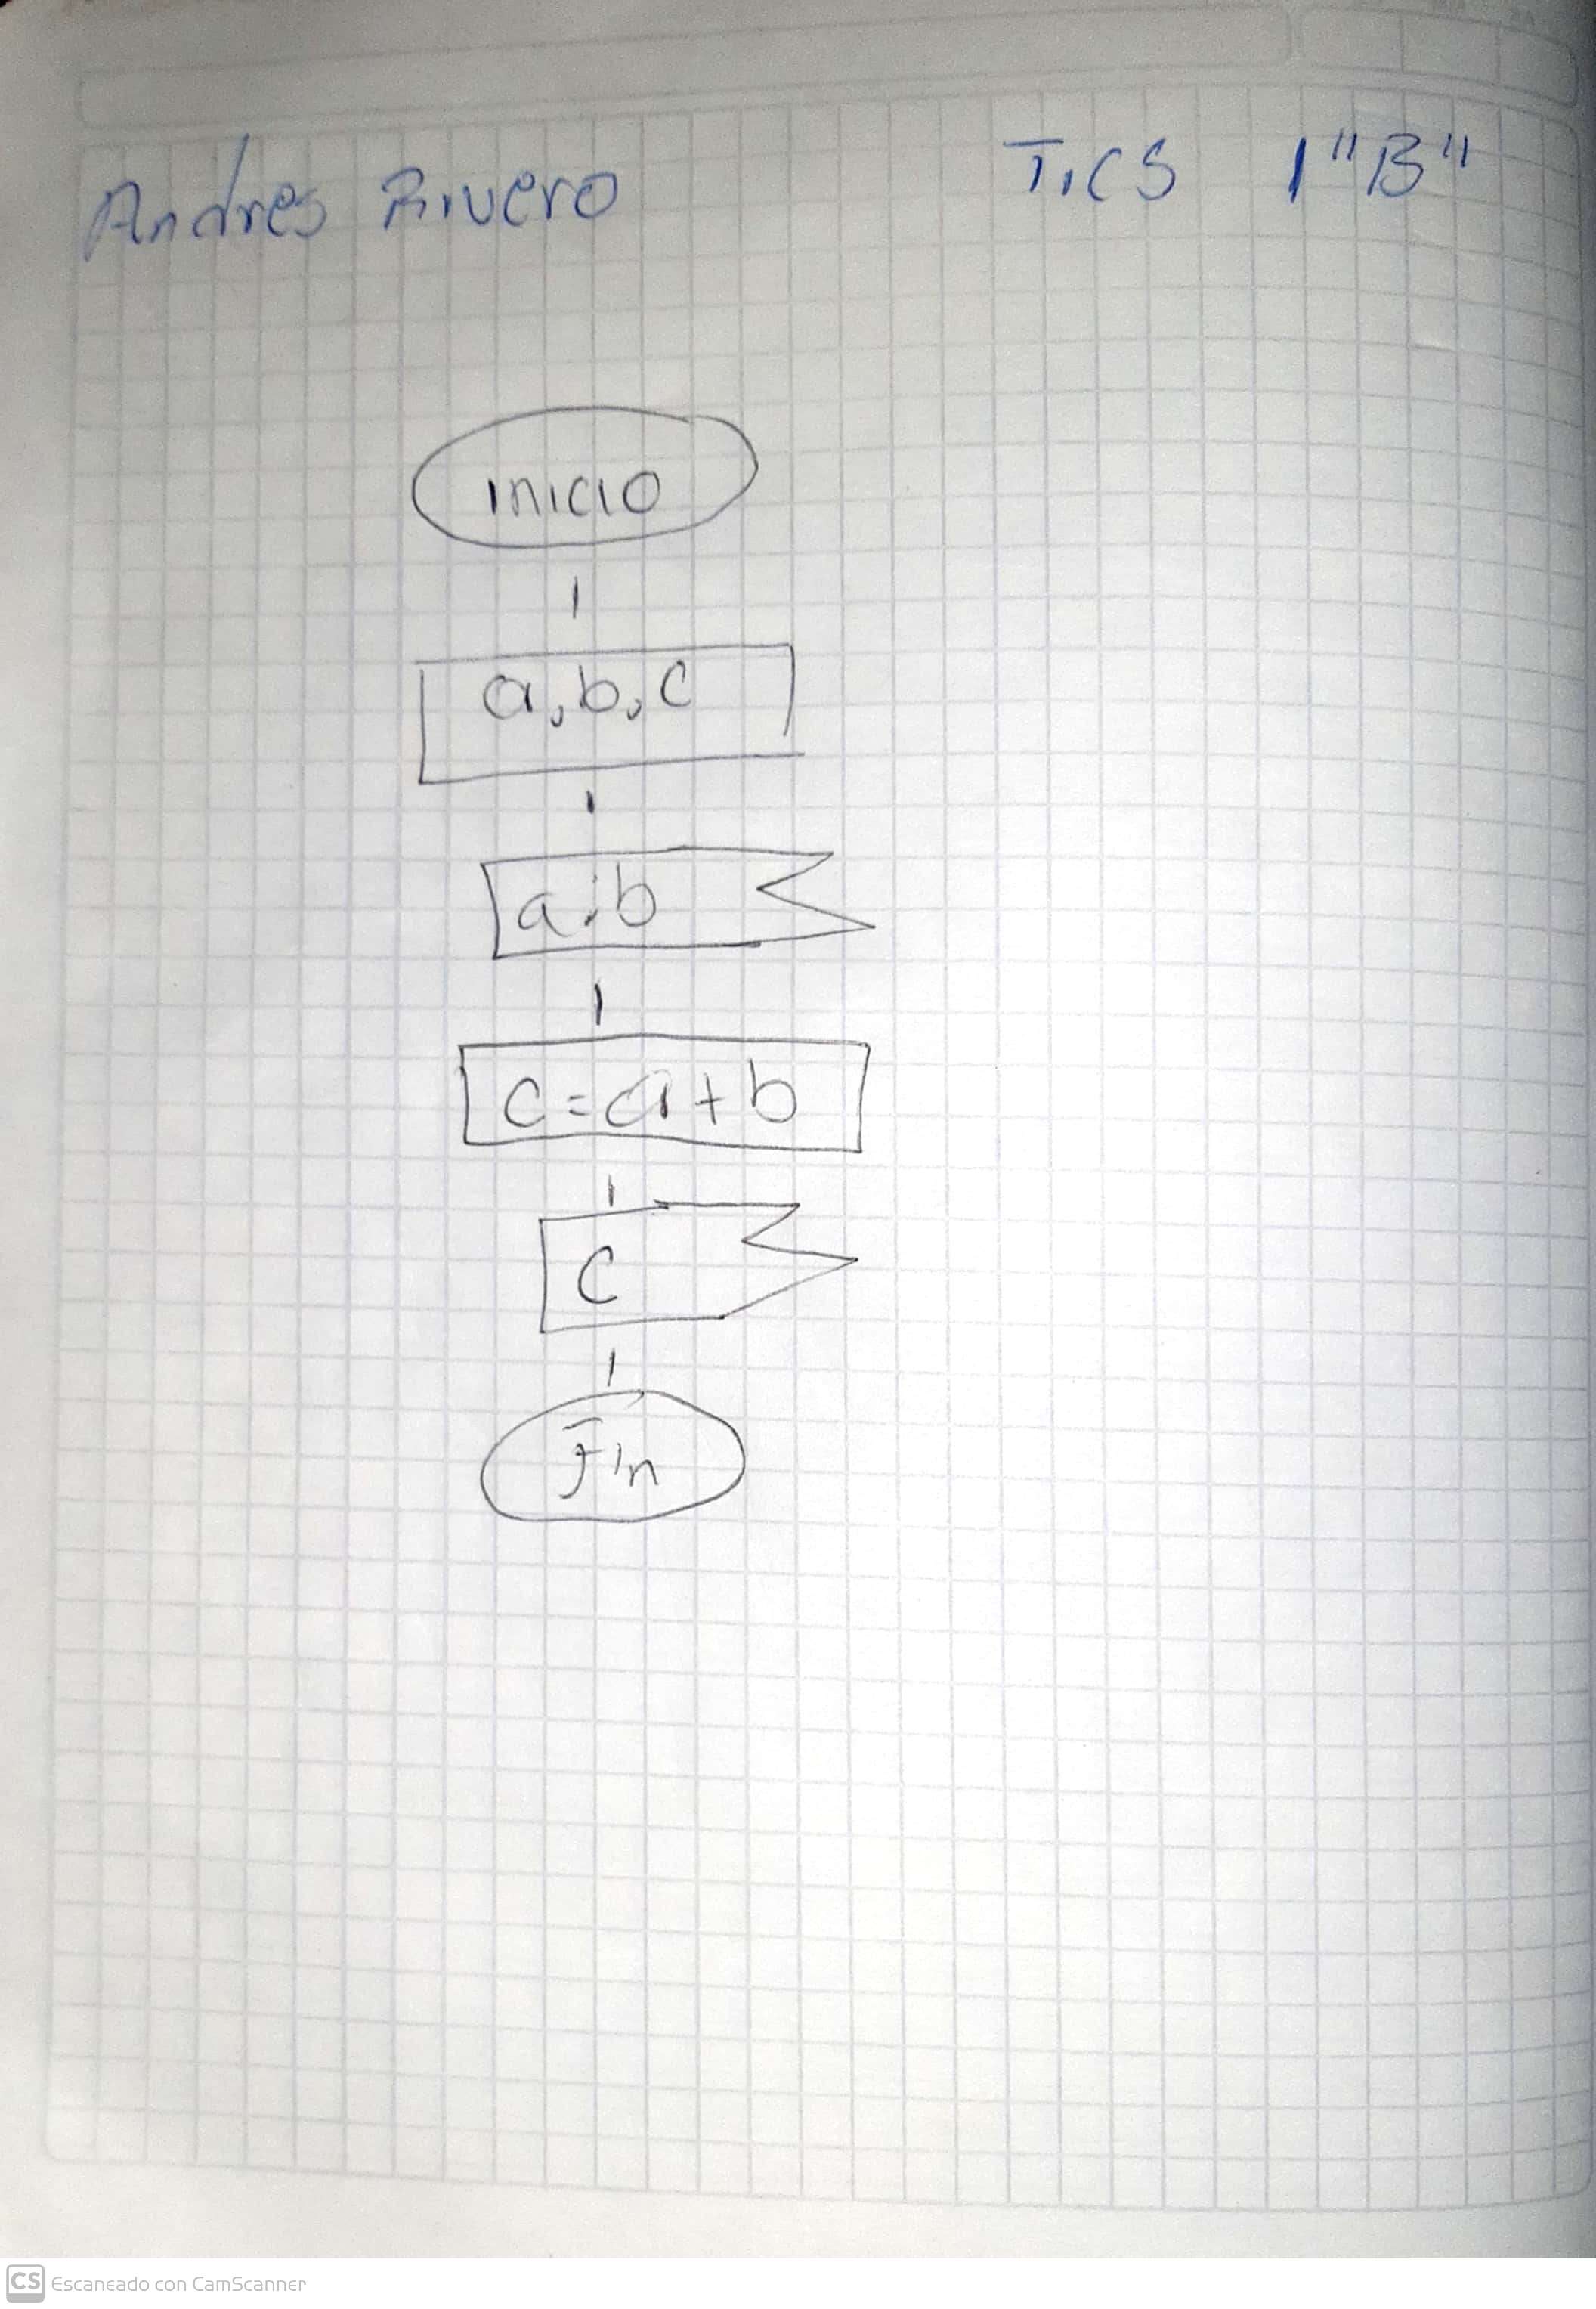 Andres Rivero
TICS 1 "B"
inicio
a,b,c
a:b
c=a+b
c
Fin
CS Escaneado con CamScanner